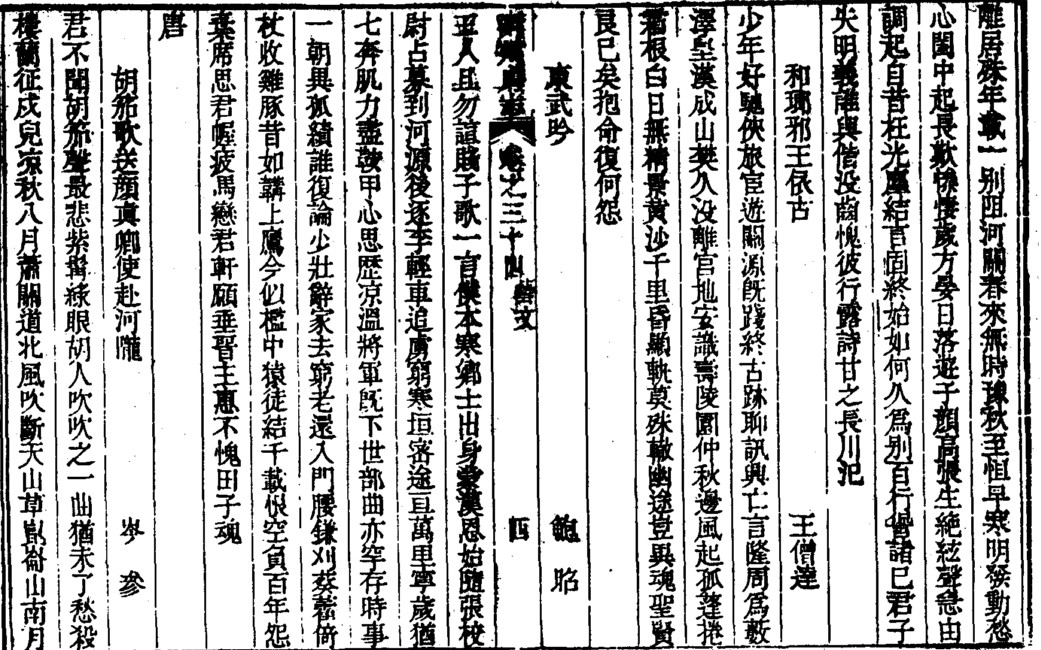 離居殊年載一別阻河關春來無時豫秋至恒早寒明發動愁
心閨中起長歎慘悽歲方晏日落遊子顏高張生絶絃聲急由
調起自昔枉光塵結言固終始如何久爲別百行愆諸已君子
失明義誰與偕沒齒愧彼行露詩甘之長川汜
和瑯邪王依古
王僧達
少年好馳俠旅宦遊關源既踐終古跡聊訊興亡言隆周爲藪
澤皇漢成山樊久没離宮地安識壽陵園仲秋邊風起孤蓬捲
霜根白日無精景黄沙千里昏顯軌莫殊轍幽途豈異魂聖賢
良已矣抱命復何怨
東武吟
鮑昭
卷之三十四
藝文
四
主人且勿諠賤子歌一言僕本寒鄉士出身蒙漢恩始隨張校
尉占募到河源後逐李輕車追虜窮寒垣密途亘萬里寧歲猶
七奔肌力盡鞍甲心思歴凉温將軍既下世部曲亦空存時事
一朝異孤績誰復論少壯辭家去窮老還入門腰鎌刈葵藿倚
杖收雞豚昔如韝上鷹今似檻中猿徒結千載恨空負百年怨
棄席思君幄疲馬戀君軒願垂晋主惠不愧田子魂
唐
胡笳歌送顏真卿使赴河隴
岑參
君不聞胡笳聲最悲紫髯綠眼胡人吹吹之一曲猶未了愁殺
樓蘭征戍兒凉秋八月蕭關道北風吹斷天山草崑崙山南月